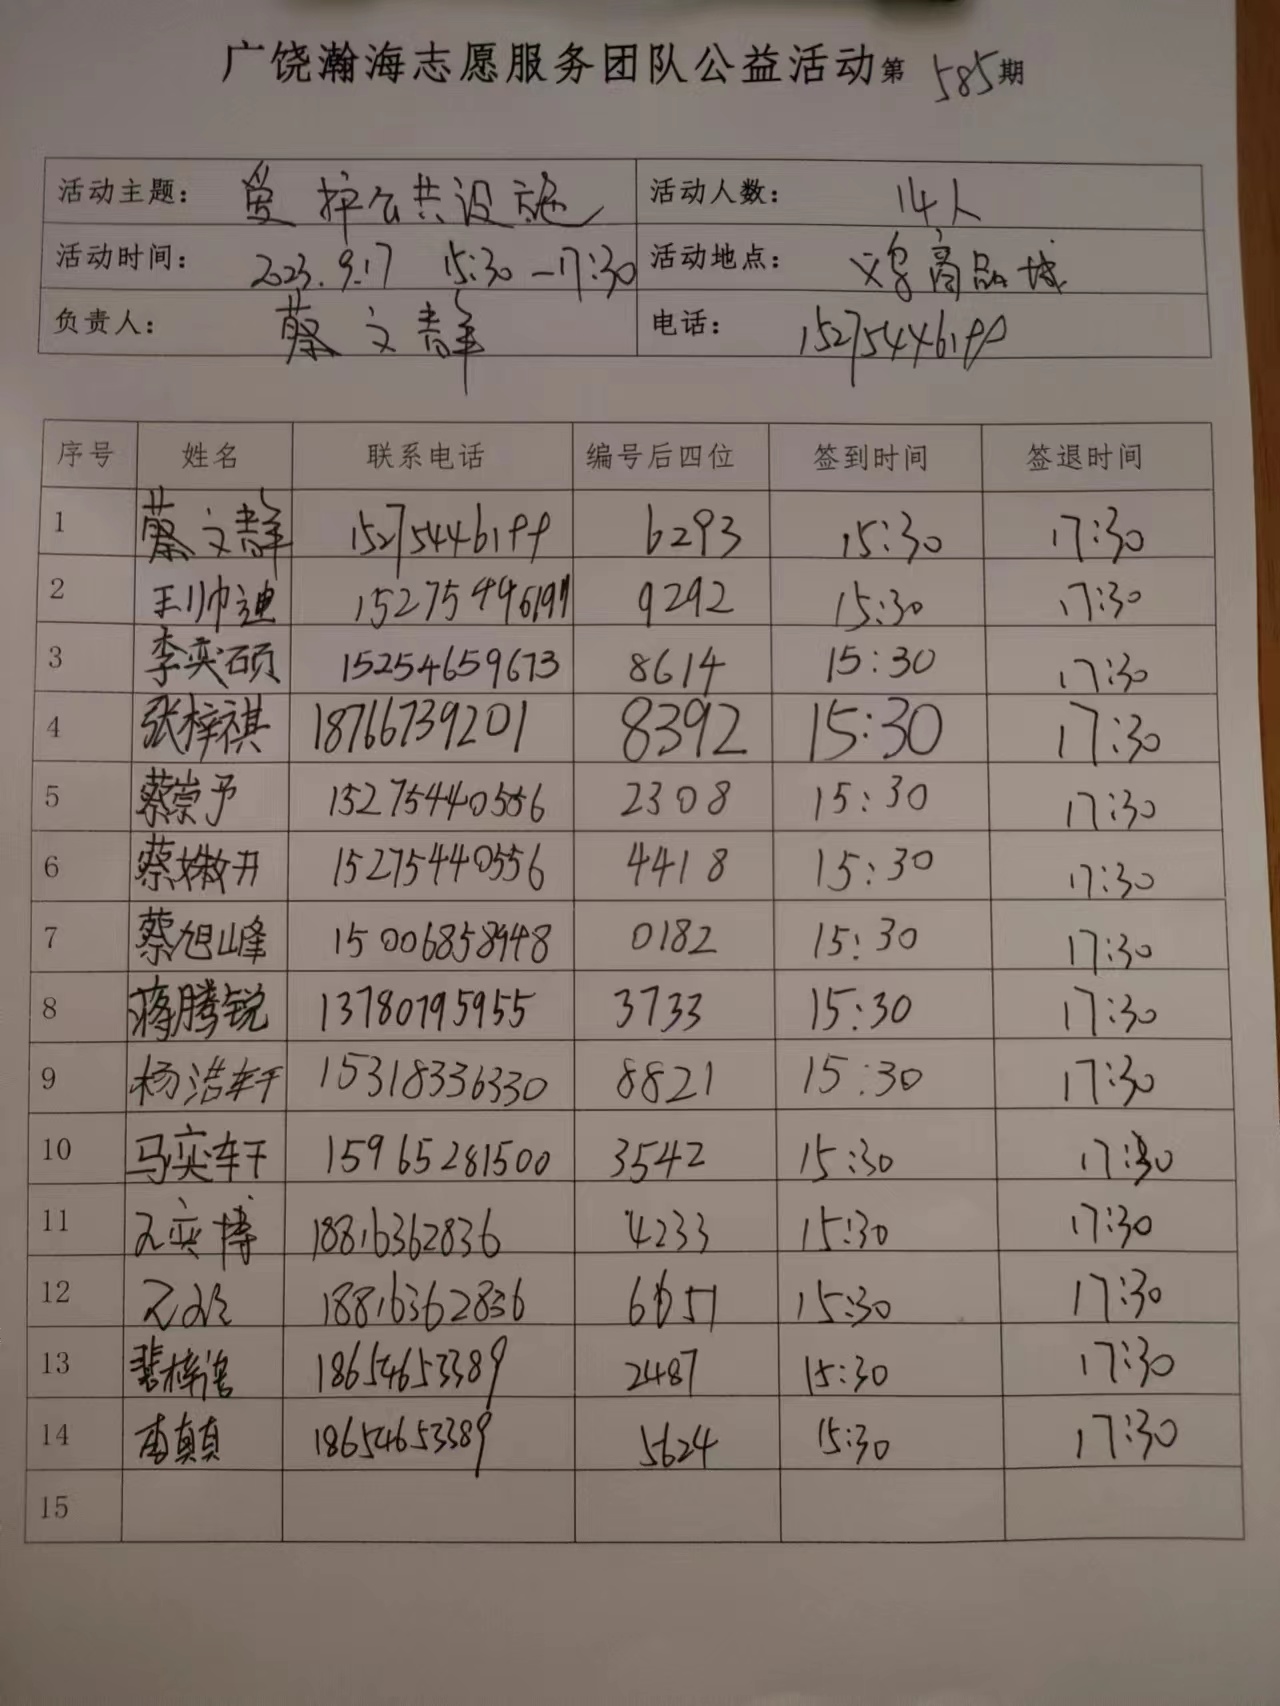 广饶瀚海志愿服务团队公益活动第 585 期
活动主题： 爱护公共设施 活动人数： 14人
活动时间： 2023.9.17 15:30—17:30 活动地点： 义乌商品城
负责人： 蔡文群 电话： 15275446199
序号 姓名 联系电话 编号后四位 签到时间 签退时间
1 蔡文群 15275446199 6293 15:30 17:30
2 王帅迪 15275446199 9292 15:30 17:30
3 李奕硕 15254659673 8614 15:30 17:30
4 张梓祺 18766739201 8392 15:30 17:30
5 蔡崇予 15275440556 2308 15:30 17:30
6 蔡 15275440556 4418 15:30 17:30
7 蔡旭峰 15006858948 0182 15:30 17:30
8 蒋腾锐 13780795955 3733 15:30 17:30
9 杨浩轩 15318336330 8821 15:30 17:30
10 马奕轩 15965281500 3542 15:30 17:30
11 奕博 18816362836 4233 15:30 17:30
12 18816362836 6651 15:30 17:30
13 裴梓 18654653389 2487 15:30 17:30
14 李真真 18654653389 5624 15:30 17:30
15